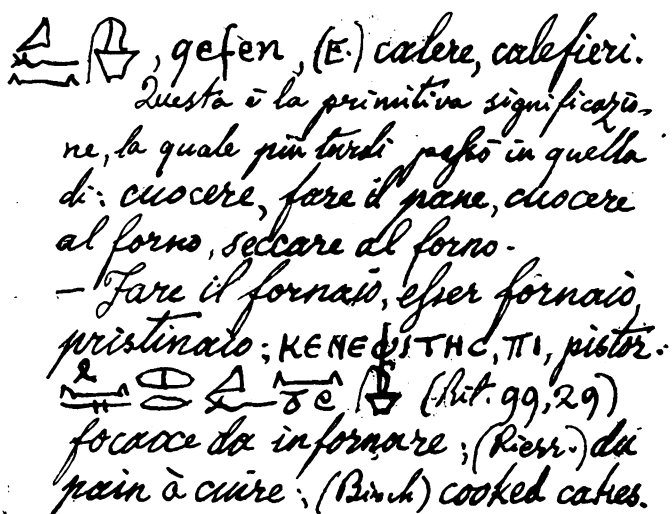 , qefen, (E.) calere, calefieri.
Questa è la primitiva significazio-
ne, la quale più tardi passò in quella
di: cuocere, fare il pane, cuocere
al forno, seccare al forno.
— Fare il fornaio, esser fornaio,
pristinaio; ⲔⲈⲚⲈϤⲒⲦⲎⲤ, ⲠⲒ, pistor.
(Rit. 99, 29)
focacce da infornare; (Pierr.) du
pain à cuire; (Birch) cooked cakes.